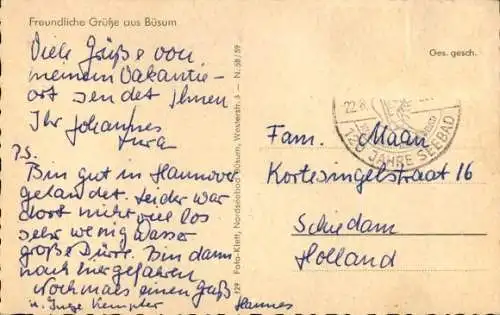 Freundliche Grüße aus Büsum
Viele Grüße von
meinem Vakantie-
ort sendet Ihnen
Ihr Johannes
P.S.
Bin gut in Hannover
gelandet. Leider war
dort nicht viel los
sehr wenig Wasser
große Dürre. Bin dann
nach hier gefahren
Nochmals einen Gruß
Hannes
u. Inge Kempter
129 Foto-Klett, Nordseebad Büsum, Westerstr. 6 - N. 58/59
Ges. gesch.
22.8.
JAHRE SEEBAD
Fam. Maan
Kortesingelstraat 16
Schiedam
Holland